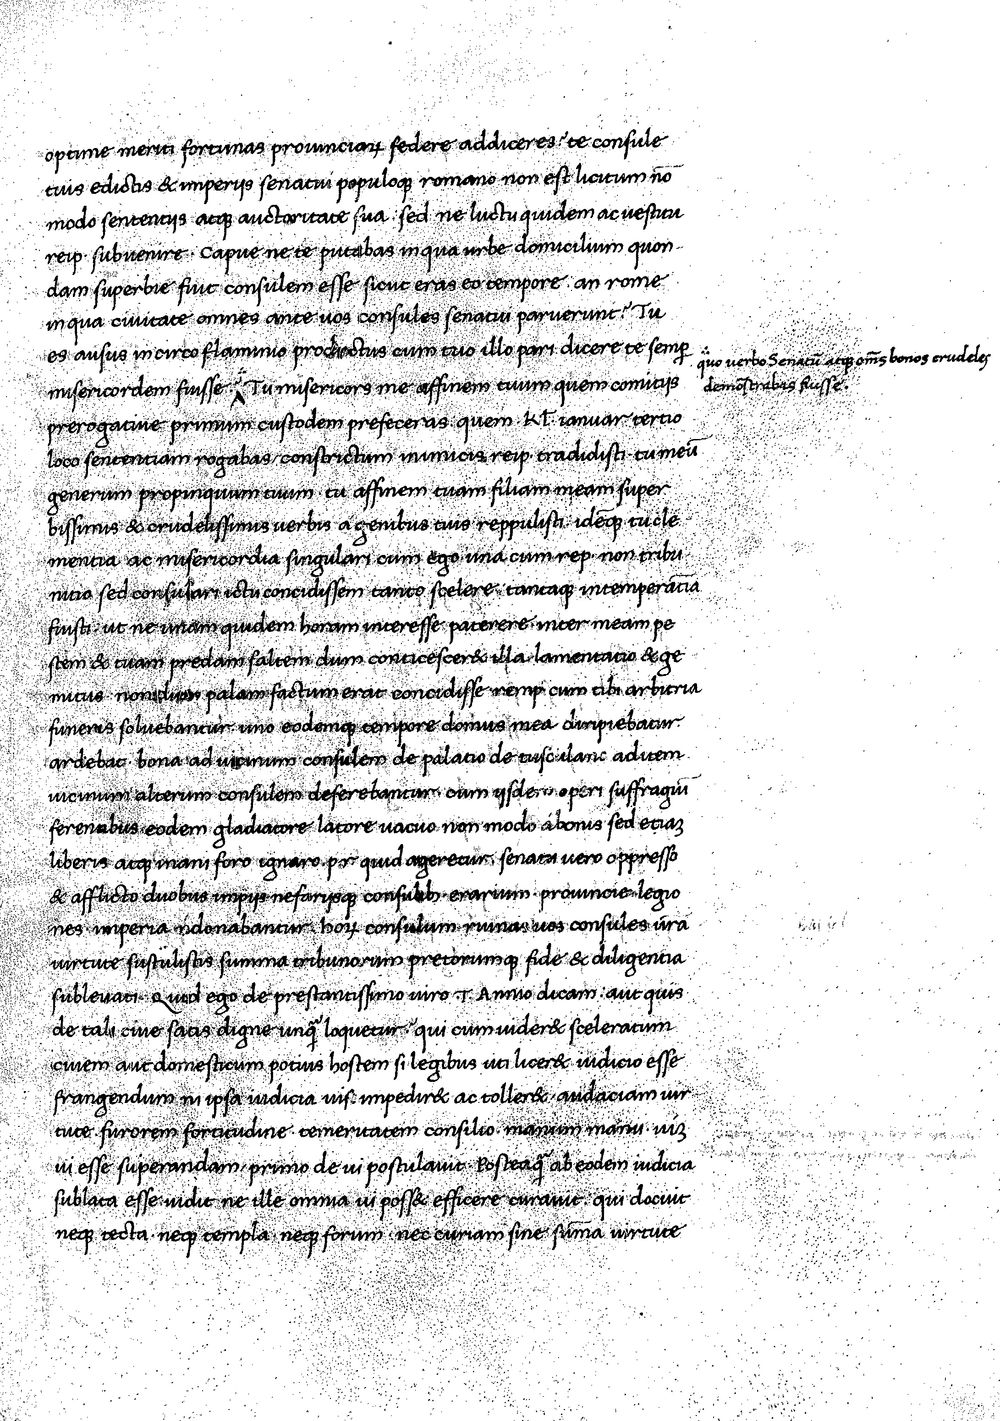 optime meriti fortunas prouinciaꝝ federe addiceres? te consule
tuis edictis & imperijs senatui populoqꝫ romano non est licitum nō
modo sententijs atqꝫ auctoritate sua · sed ne luctu quidem ac uestitu
reip· subuenire · Capue ne te putabas in qua urbe domicilium quon
dam superbie fuit consulem esse sicut eras eo tempore · an rome
in qua ciuitate omnes ante uos consules senatui paruerunt? Tu
es ausus in circo flaminio productus cum tuo illo pari dicere te semꝑ
quo uerbo Senatū atqꝫ om̄s bonos crudeles
demōstrabas fuisse.
misericordem fuisse · Tu misericors me affinem tuum quem comitijs
prerogatiue primum custodem prefeceras quem Kl̄ ianuar tertio
loco sententiam rogabas constrictum inimicis reip· tradidisti · tu meū
generum propinquum tuum · tu affinem tuam filiam meam super
bissimis & crudelissimis uerbis a genibus tuis reppulisti · idēqꝫ tu cle
mentia ac misericordia singulari cum ego una cum rep· non tribu
nitio sed consulari ictu concidissem tanto scelere · tantaqꝫ intemperātia
fuisti · ut ne unam quidem horam interesse paterere inter meam pe
stem & tuam predam saltem dum conticescer& illa lamentatio & ge
mitus palam factum erat concidisse remp· cum tibi arbitria
funeris soluebantur · uno eodemqꝫ tempore domus mea diripiebatur
ardebat · bona ad uicinum consulem de palatio de tusculano ad item
uicinum alterum consulem deferebantur · cum ijsdem operi suffragiū
ferentibus eodem gladiatore latore uacuo non modo a bonis sed etiaꝫ
liberis atqꝫ inani foro ignaro p· r· quid ageretur · senatu uero oppresso
& afflicto duobus impijs nefarijsqꝫ consulib· erarium · prouincie legio
nes · imperia · donabantur · hoꝝ consulum ruinas uos consules ūra
uirtute sustulistis summa tribunorum pretorumqꝫ fide & diligentia
subleuati · Quid ego de prestantissimo uiro · T· Annio dicam · aut quis
de tali ciue satis digne unq̄ loquetur? qui cum uider& sceleratum
ciuem aut domesticum potius hostem si legibus uti licer& iudicio esse
frangendum · in ipsa iudicia uis impedir& ac toller& · audaciam uir
tute · furorem fortitudine · temeritatem consilio · manum manu · uiꝫ
ui esse superandam · primo de ui postulauit · Posteaq̄ ab eodem iudicia
sublata esse uidit ne ille omnia ui poss& efficere curauit · qui docuit
neqꝫ tecta · neqꝫ templa · neqꝫ forum · nec curiam sine sum̄a uirtute